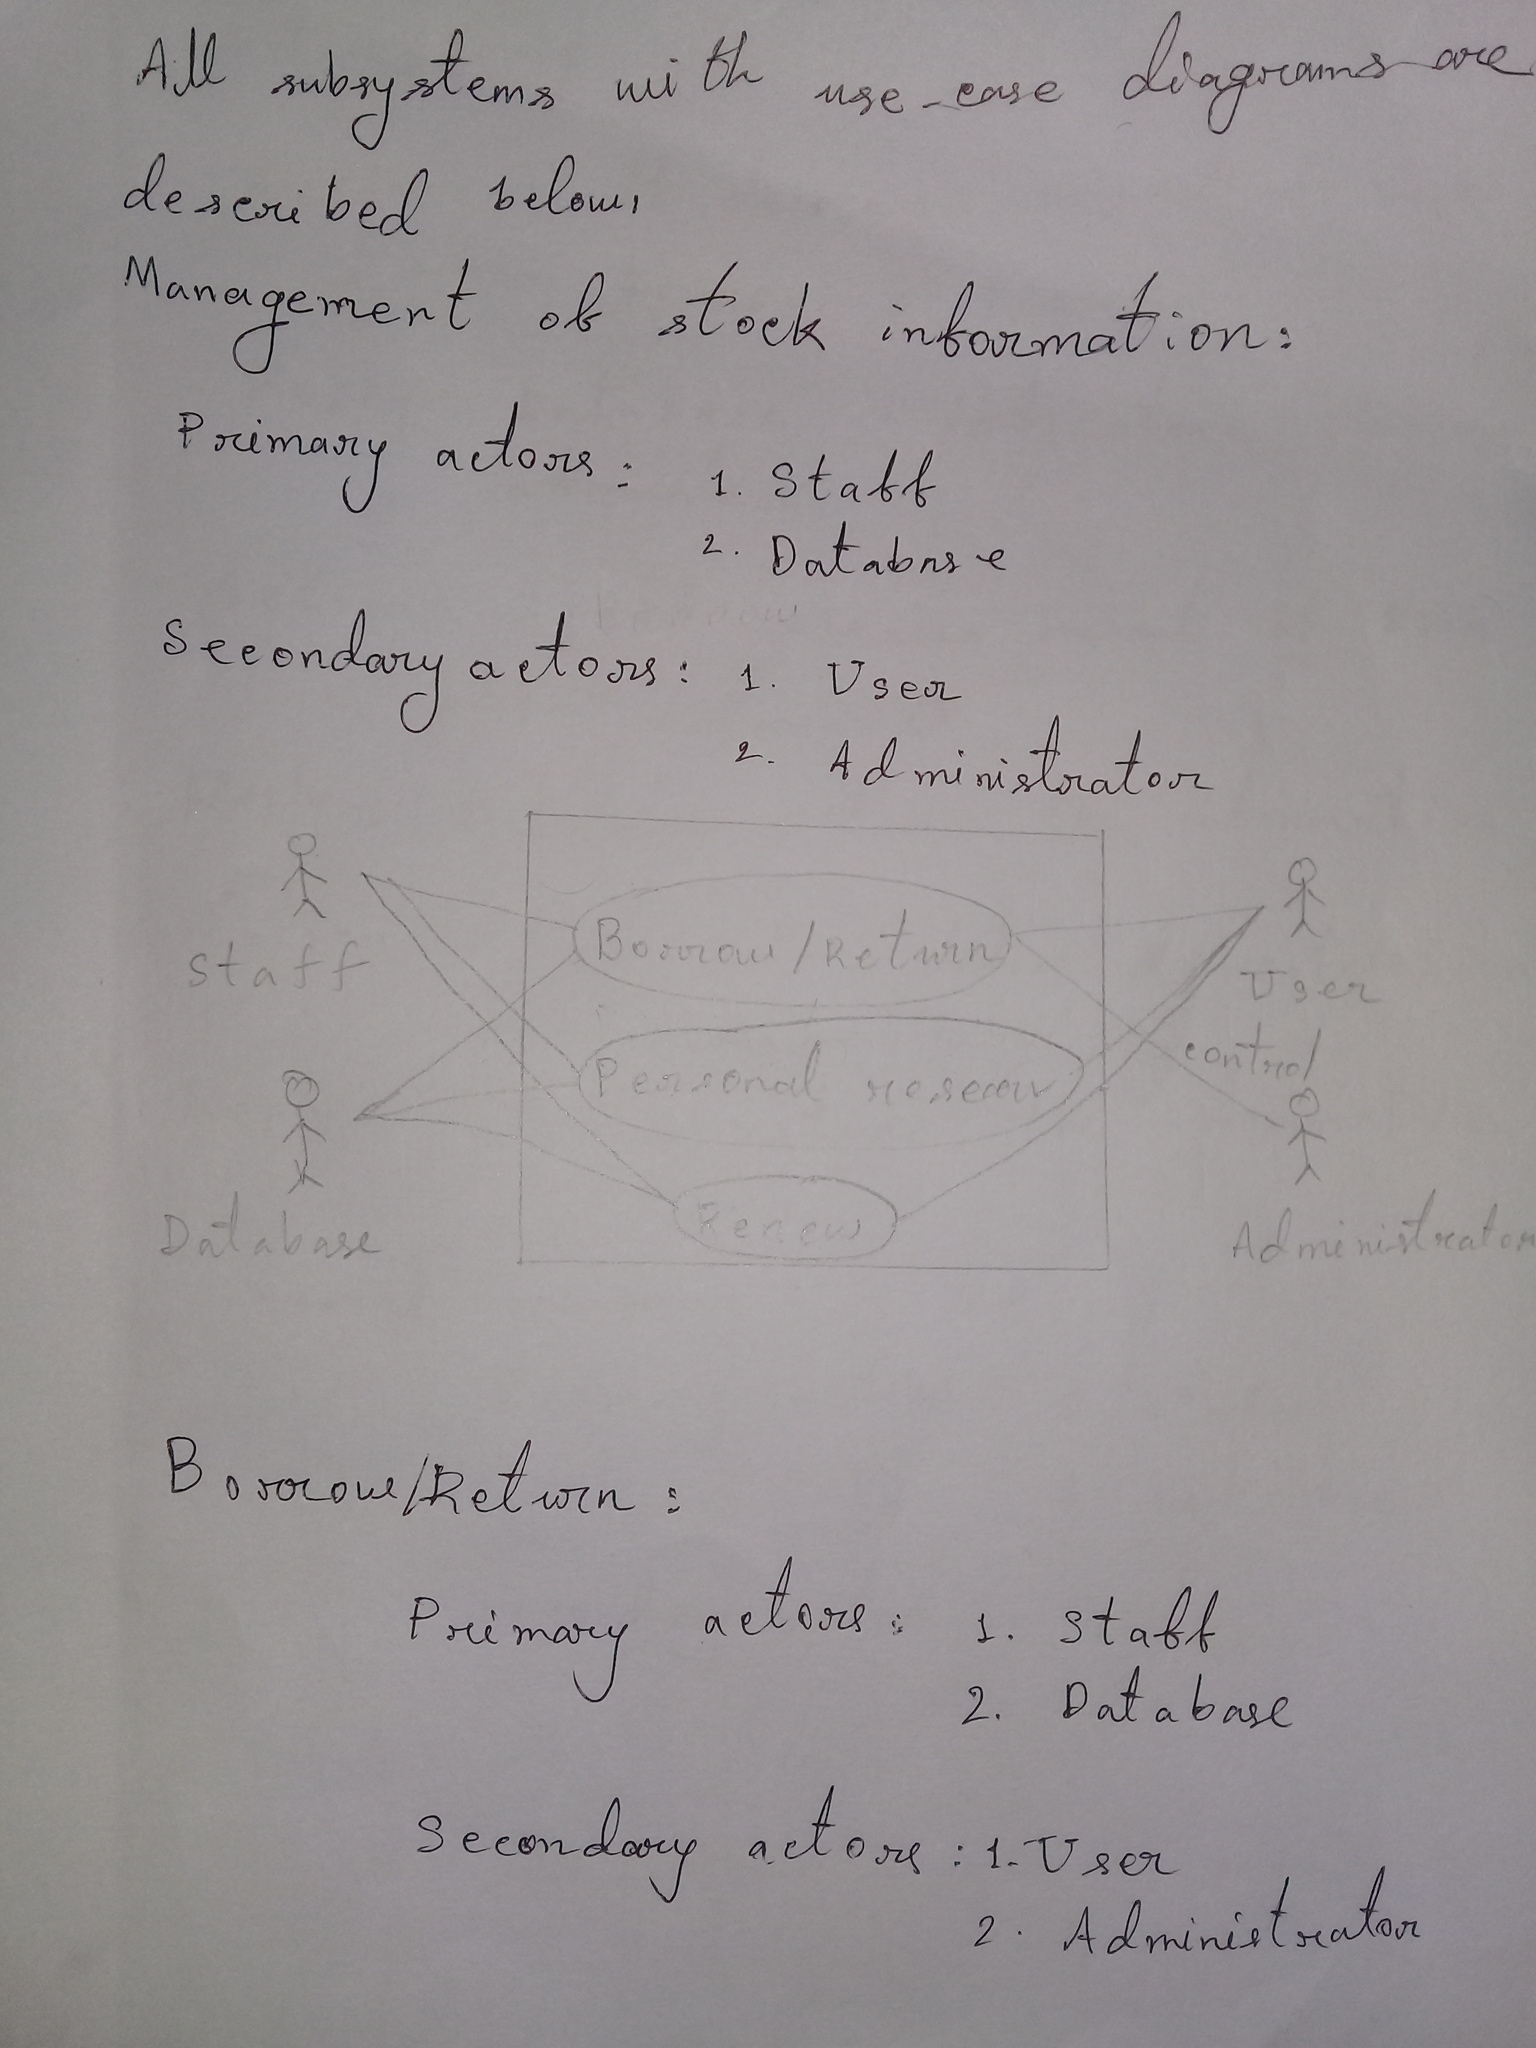 All subsystems with use-case diagrams are
described below.
Management of stock information:
Primary actors: 1. Staff
2. Database
Secondary actors: 1. User
2. Administrator
Staff
Borrow/Return
User
control
Personal
Database
Renew
Administrator
Borrow/Return:
Primary actors: 1. Staff
2. Database
Secondary actors: 1. User
2. Administrator